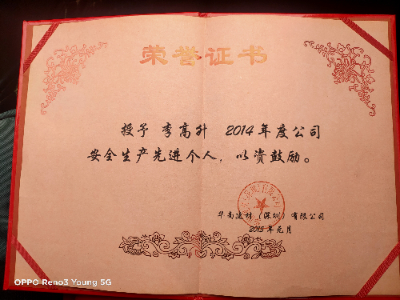 荣誉证书
授予 李高升 2014年度公司
安全生产先进个人，以资鼓励。
华南建材（深圳）有限公司
2015年元月
OPPO Reno3 Young 5G